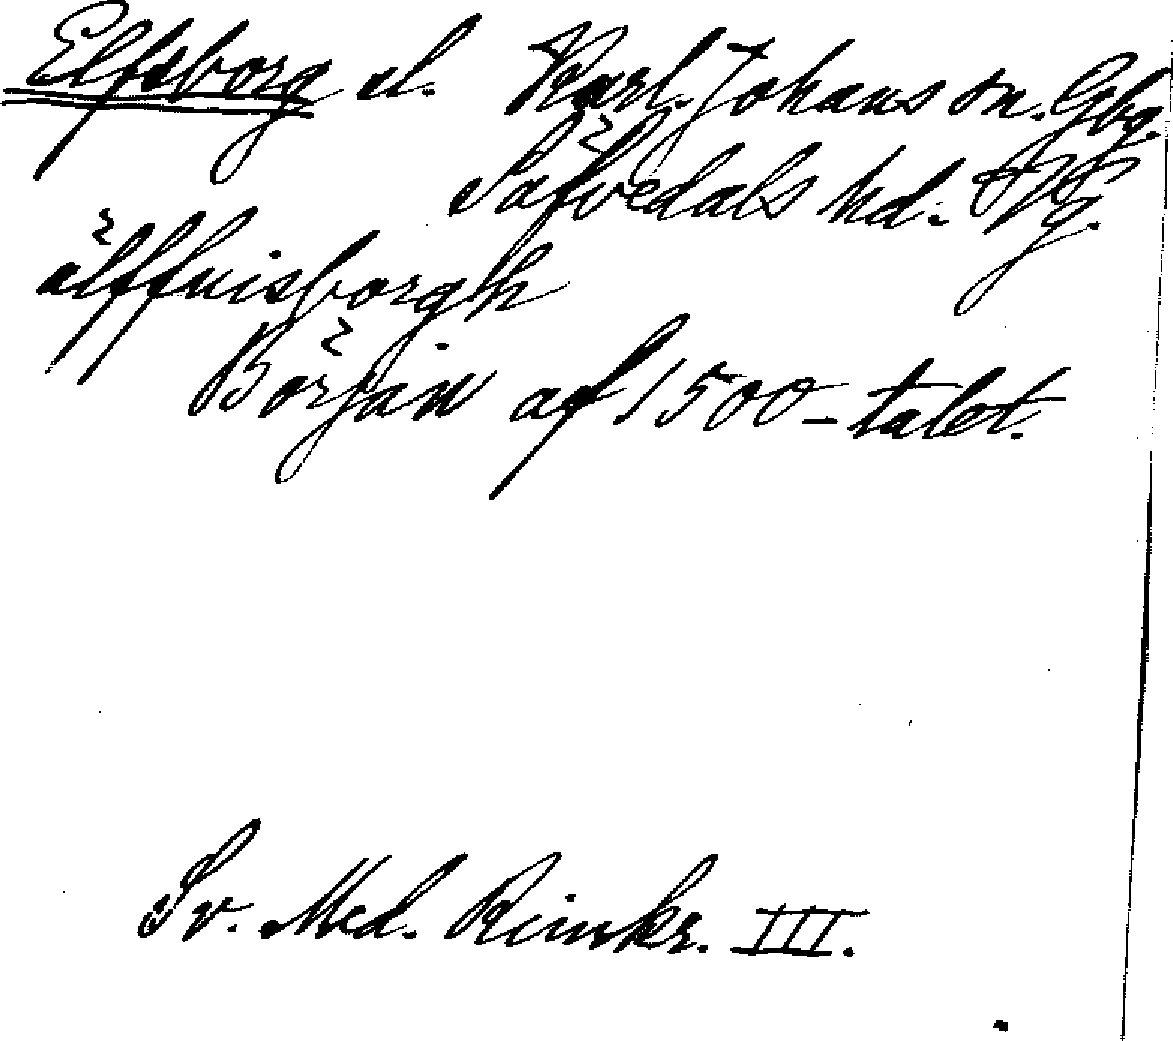 Elfsborg el. Karl Johans sn. Gbg.
Säfvedals hd. Vg.
älffuisborgh
Början af 1500-talet.
Sv. Med. Rimkr. III.